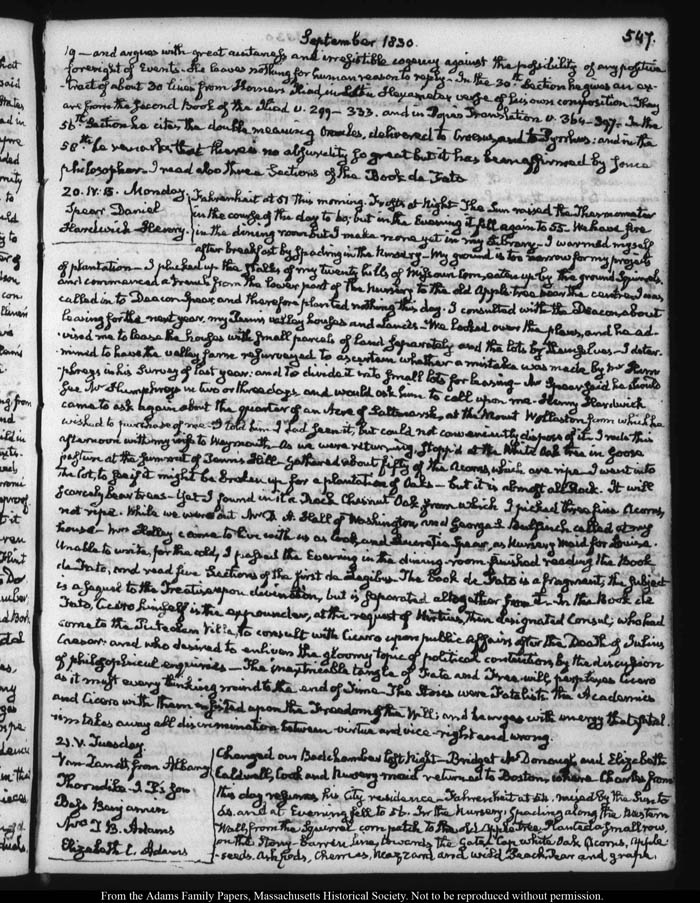 September 1830.
547.
19 — and argues with great acuteness and irresistible cogency against the possibility of any positive
foresight of Events. He leaves nothing for human reason to reply. In the 30th Section he gives an ex-
tract of about 30 lines from Homers Iliad in Latin Hexameter verse of his own composition. They
are from the second Book of the Iliad v. 299-333. and in Popes Translation v. 364-397. In the
56th Section he cites the double meaning Oracles, delivered to Croesus, and to Pyrrhus: and in the
58th he remarks that there is no absurdity so great but it has been affirmed by some
philosopher. I read also three Sections of the Book de Fato
20. IV. 15. Monday.
Spear Daniel
Hardwick Henry.
Fahrenheit at 51 this morning. Frosts at Night. The Sun raised the Thermometer
in the course of the day to 60, but in the Evening it fell again to 55. We have fire
in the dining room but I make none yet in my Library. I warmed myself
after breakfast by spading in the Nursery. My ground is too narrow for my projects
of plantation — I plucked up the stalks of my twenty hills of Missouri Corn, eaten up by the ground Squirrels.
and commenced a trench from the lower part of the Nursery to the old Apple tree near the centre. I was
called in to Deacon Spear, and therefore planted nothing this day. I consulted with the Deacon about
leasing for the next year, my Penn's valley houses and lands. We looked over the plans, and he ad-
vised me to lease the houses with small parcels of land separately and the lots by themselves. I deter-
mined to have the valley farm resurveyed to ascertain whether a mistake was made by Mr Hum
phreys in his Survey of last year. and to divide it into small lots for leasing. Mr Spear said he should
see Mr Humphreys in two or three days and would ask him to call upon me. Henry Hardwick
came to ask again about the quarter of an Acre of Saltmarsh, at the Mount Wollaston farm which he
wished to purchase of me. I told him I had seen it, but could not conveniently dispose of it. I rode this
afternoon with my wife to Weymouth. As we were returning, stopp'd at the White Oak tree in Goose
pasture at the summit of Penn's Hill — gathered about fifty of the Acorns, which are ripe. I went into
the lot, to see if it might be broken up for a plantation of Oaks — but it is almost all Rock. It will
scarcely bear trees — Yet I found in it a Rock Chesnut Oak from which I picked three fine Acorns,
not ripe. While we were out Mr D. A. Hall of Washington, and George S. Bulfinch called at my
house. Mrs Holley came to live with us as Cook, and Lucretia Spear, as Nursery Maid for Louisa.
Unable to write, for the cold, I passed the Evening in the dining-room. finished reading the Book
de Fato, and read five Sections of the first de Legibus. The Book de Fato is a fragment; the subject
is a sequel to the Treatise upon divination, but is separated altogether from it. In the Book de
Fato, Cicero himself is the expounder, at the request of Hirtius, then designated Consul, who had
come to the Puteolan Villa, to consult with Cicero upon public affairs after the Death of Julius
Caesar. and who desired to enliven the gloomy topic of political contentions by the discussion
of philosophical enquiries — The inextricable tangle of Fate and Free-will, perplexes Cicero
as it must every thinking mind to the end of time. The Stoics were Fatalists. the Academics
and Cicero with them insisted upon the Freedom of the Will; and he urges with energy that fatal
ism takes away all discrimination between virtue and vice. right and wrong.
21. V. Tuesday.
Van Zandt from Albany
Thorndike I. P. & Son
Bass Benjamin
Mrs T. B. Adams
Elizabeth C. Adams
Changed our Bedchamber last Night. Bridget McDonough and Elizabeth
Caldwell, Cook and Nursery maid returned to Boston, where Charles from
this day resumes his City residence. Fahrenheit at 54. raised by the Sun to
65. and at Evening fell to 56. In the Nursery, Spading along the Western
Wall, from the Squirrel corn patch to the old Apple Tree. Planted a small row,
on the Stony-Barren line, towards the Gate, Cap white Oak Acorns, Apple
-seeds. Ash pods, Cherries, Mazzard and wild Peach Pear and grape.
From the Adams Family Papers, Massachusetts Historical Society. Not to be reproduced without permission.